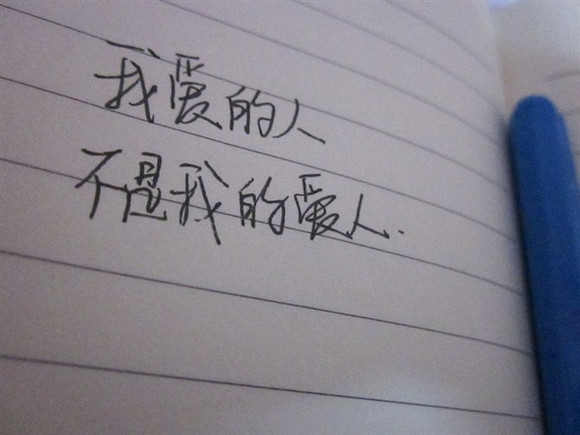 我爱的人
不是我的爱人.